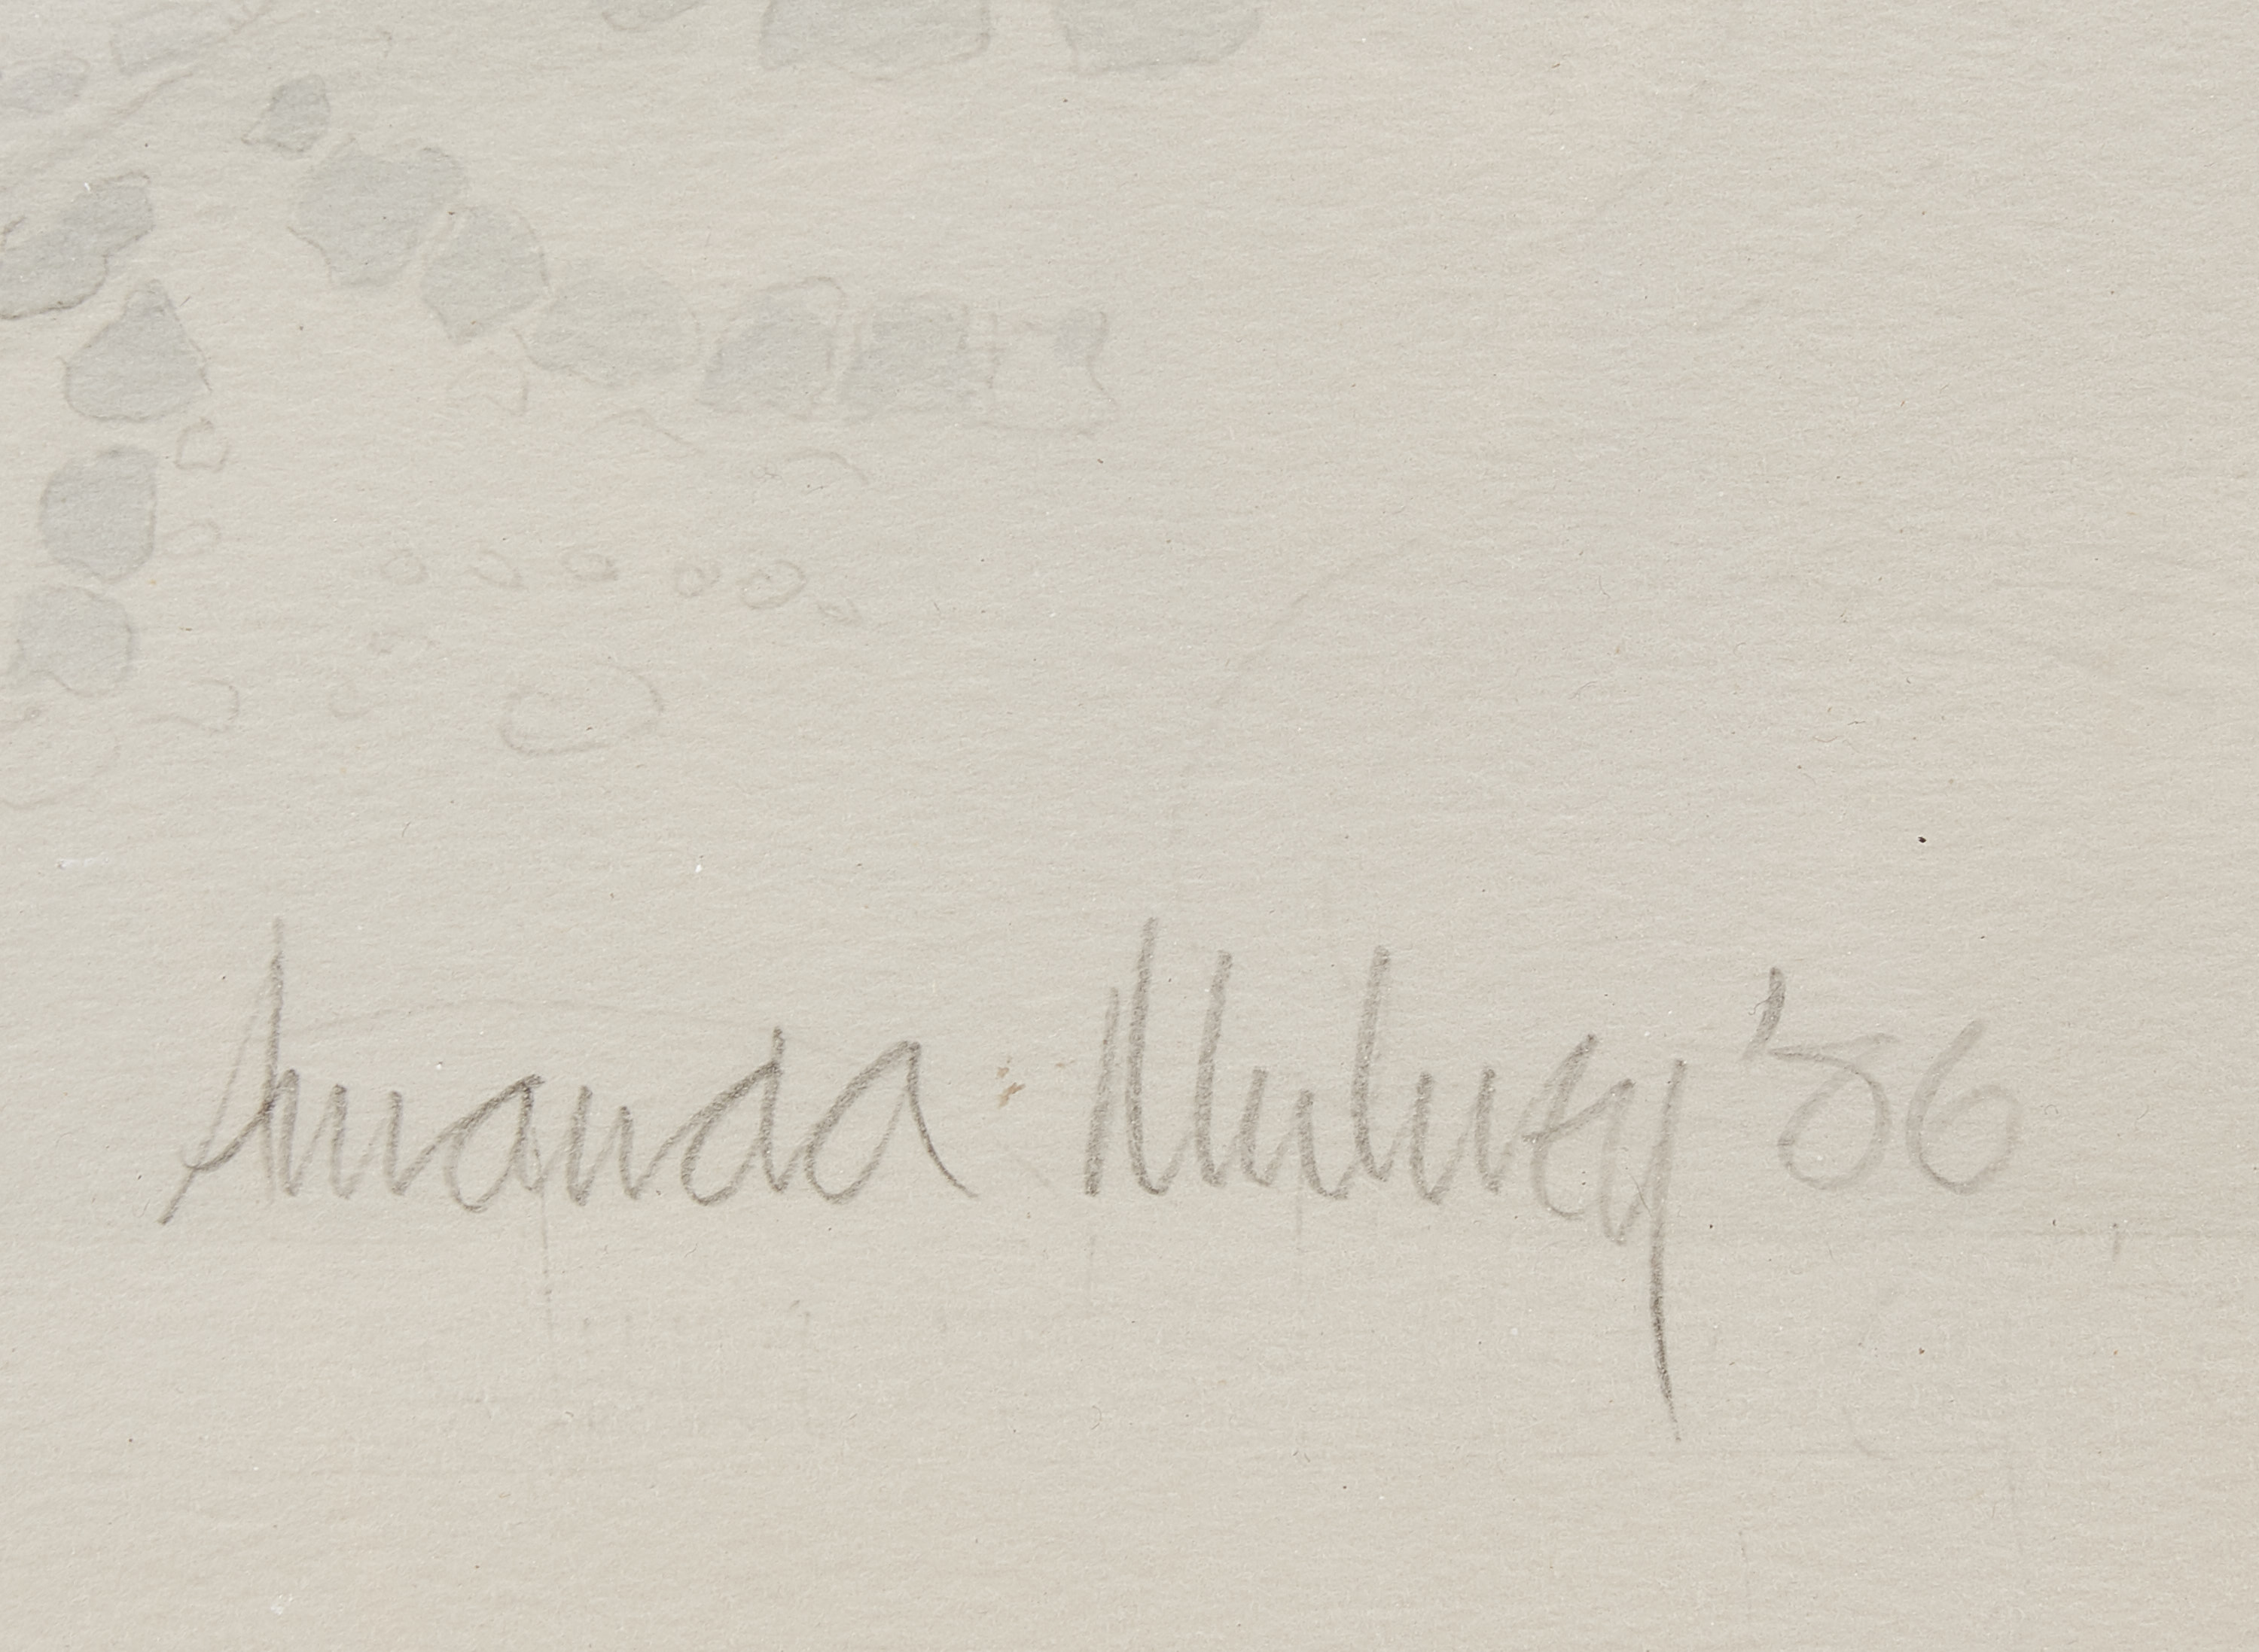 Amanda Mulvey '86